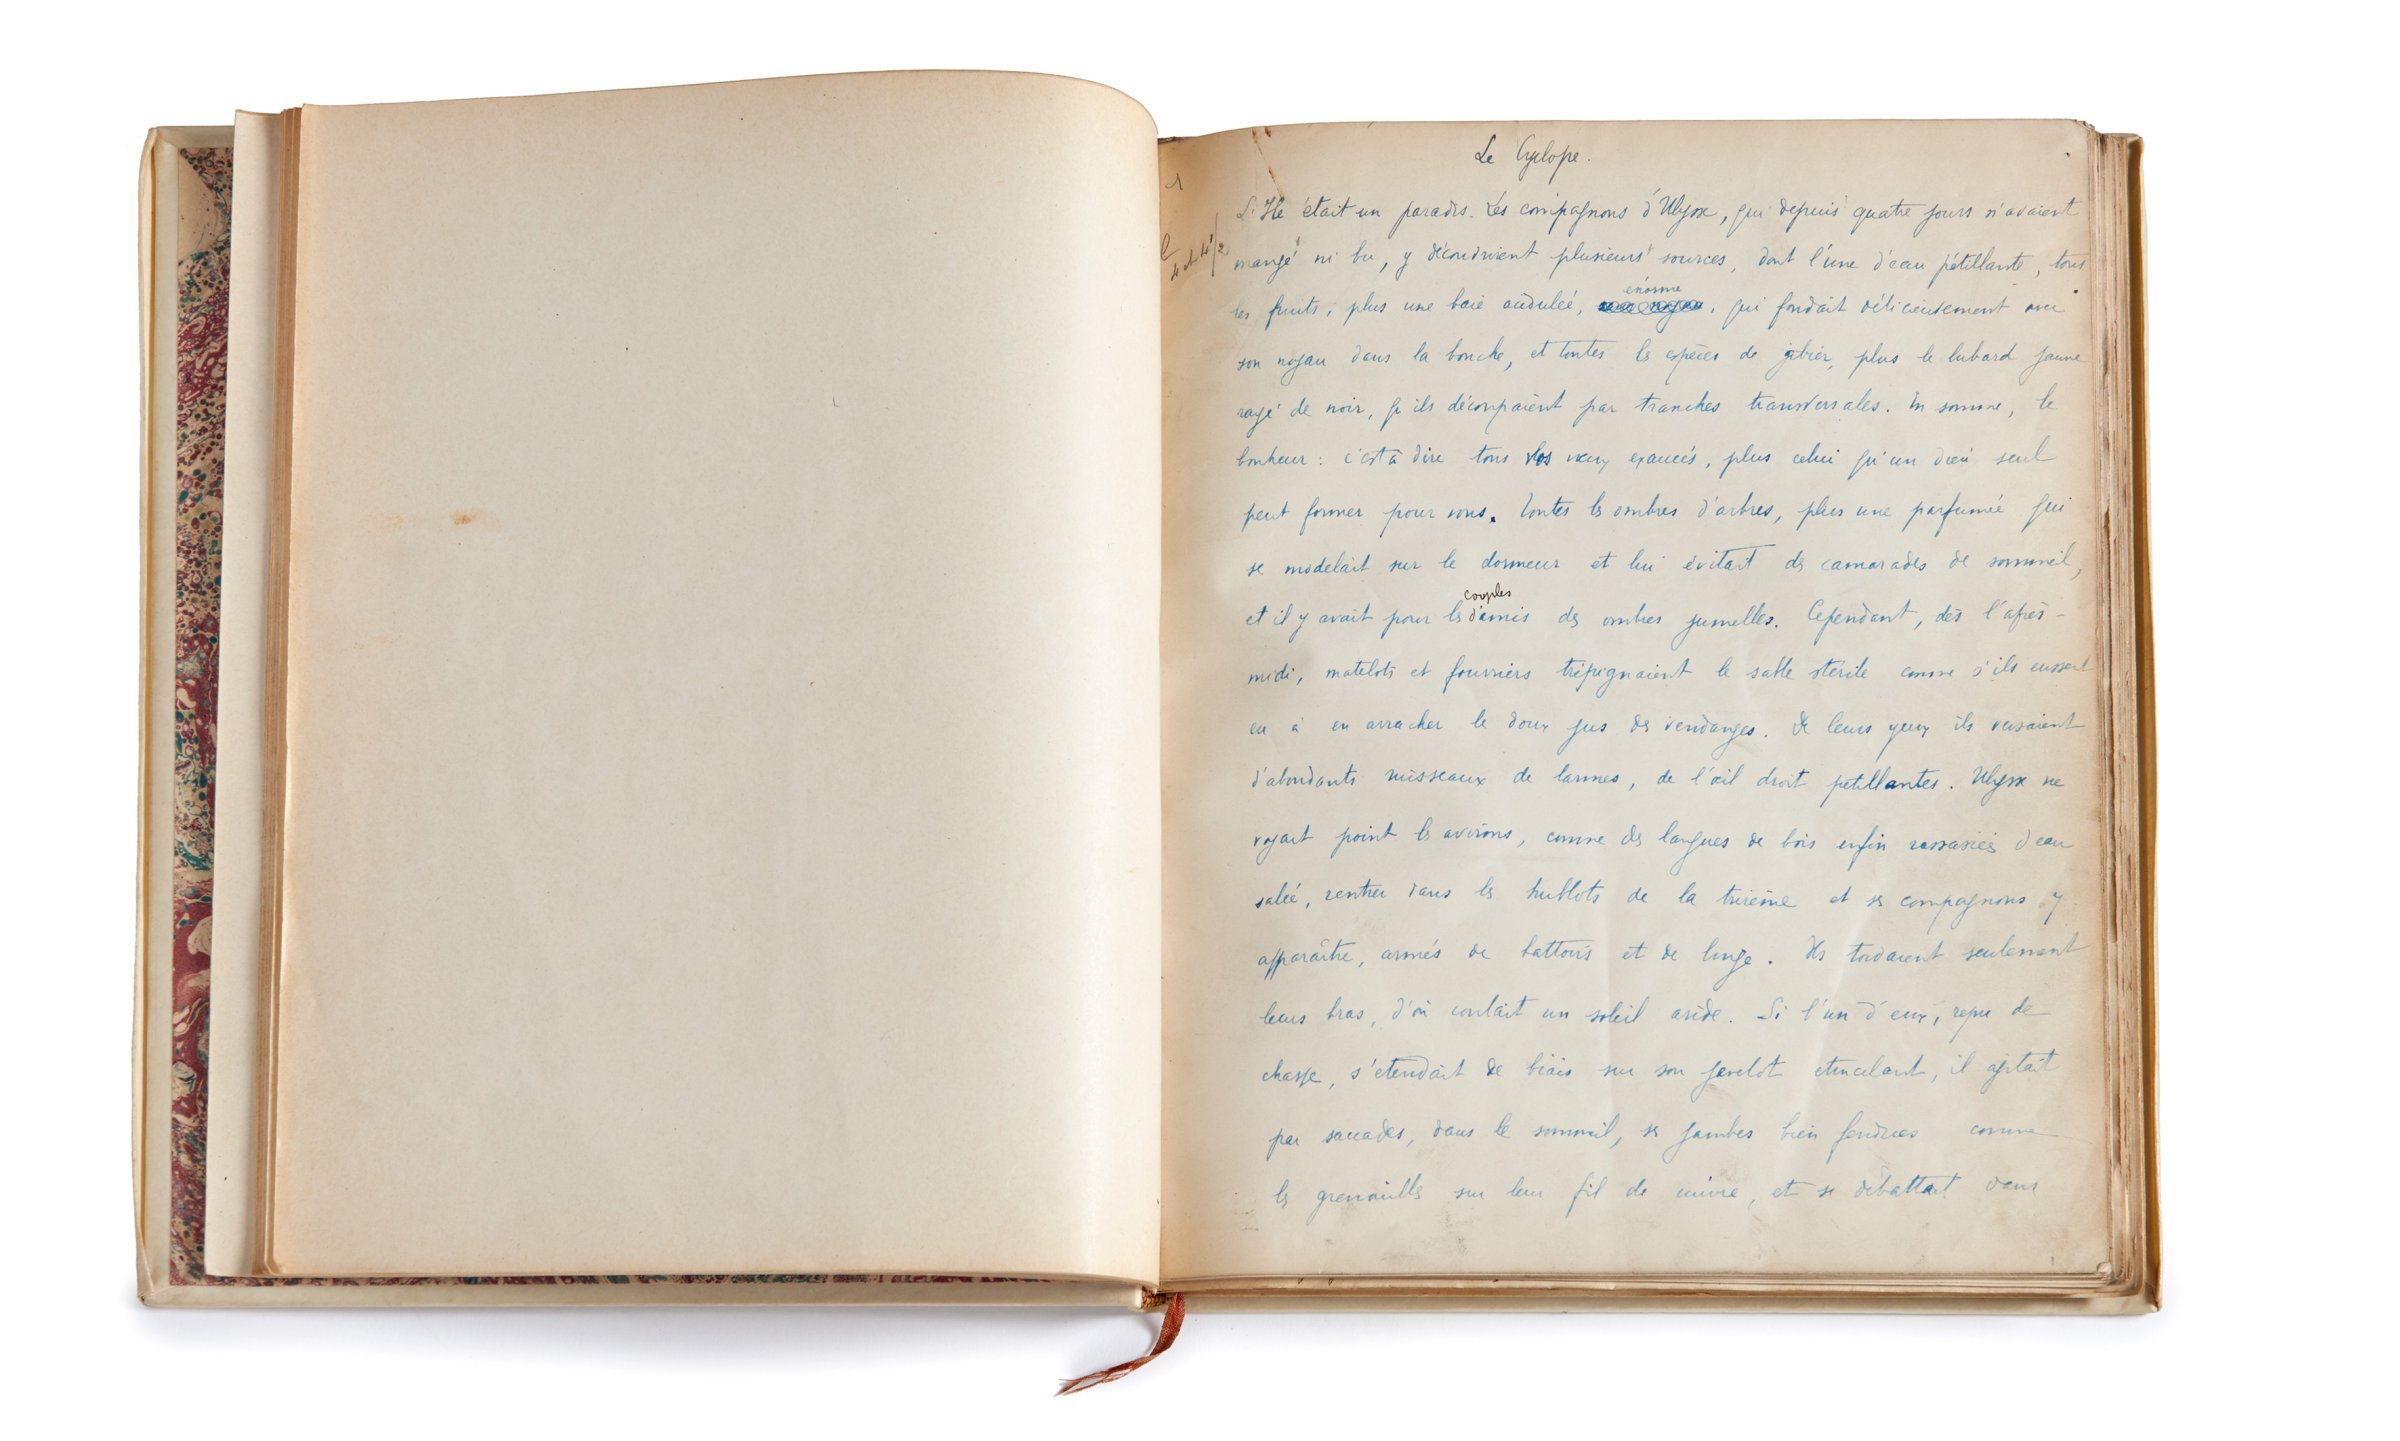 Le Cyclope.
L'Ile était un paradis. Les compagnons d'Ulysse, qui depuis quatre jours n'avaient
mangé ni bu, y découvrirent plusieurs sources, dont l'une d'eau pétillante, tous
énorme
les fruits, plus une baie acidulée, qui fondait délicieusement avec
son noyau dans la bouche, et toutes les espèces de gibier, plus le lubard jaune
rayé de noir, qu'ils découpaient par tranches transversales. En somme, le
bonheur : c'est à dire tous vos vœux exaucés, plus celui qu'un dieu seul
peut former pour vous. Toutes les ombres d'arbres, plus une parfumée qui
se modelait sur le dormeur et lui évitait des camarades de sommeil,
couples
et il y avait pour les d'amis des ombres jumelles. Cependant, dès l'après-
midi, matelots et fourriers trépignaient le sable stérile comme s'ils eussent
eu à en arracher le doux jus des vendanges. De leurs yeux ils versaient
d'abondants ruisseaux de larmes, de l'œil droit pétillantes. Ulysse ne
voyait point les avirons, comme des langues de bois enfin rassasiées d'eau
salée, rentrer dans les hublots de la trirème et ses compagnons y
apparaître, armés de battoirs et de linge. Ils tordaient seulement
leurs bras, d'où coulait un soleil aride. Si l'un d'eux, repu de
chasse, s'étendait de biais sur son javelot étincelant, il agitait
par saccades, dans le sommeil, ses jambes bien fendues comme
les grenouilles sur leur fil de cuivre, et se débattait dans